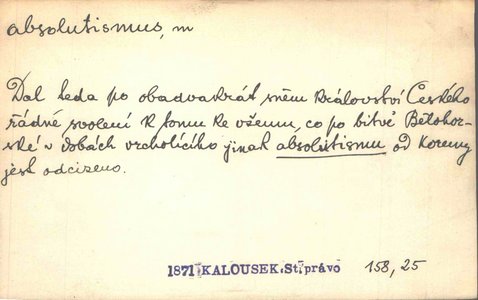 absolutismus, m
Dal teda po obadvakrát sněm království Českého
řádné svolení k tomu ke všemu, co po bitvě Bělohor-
ské v dobách vrcholícího jinak absolutismu od koruny
jest odcizeno.
1871 KALOUSEK St. právo 158, 25